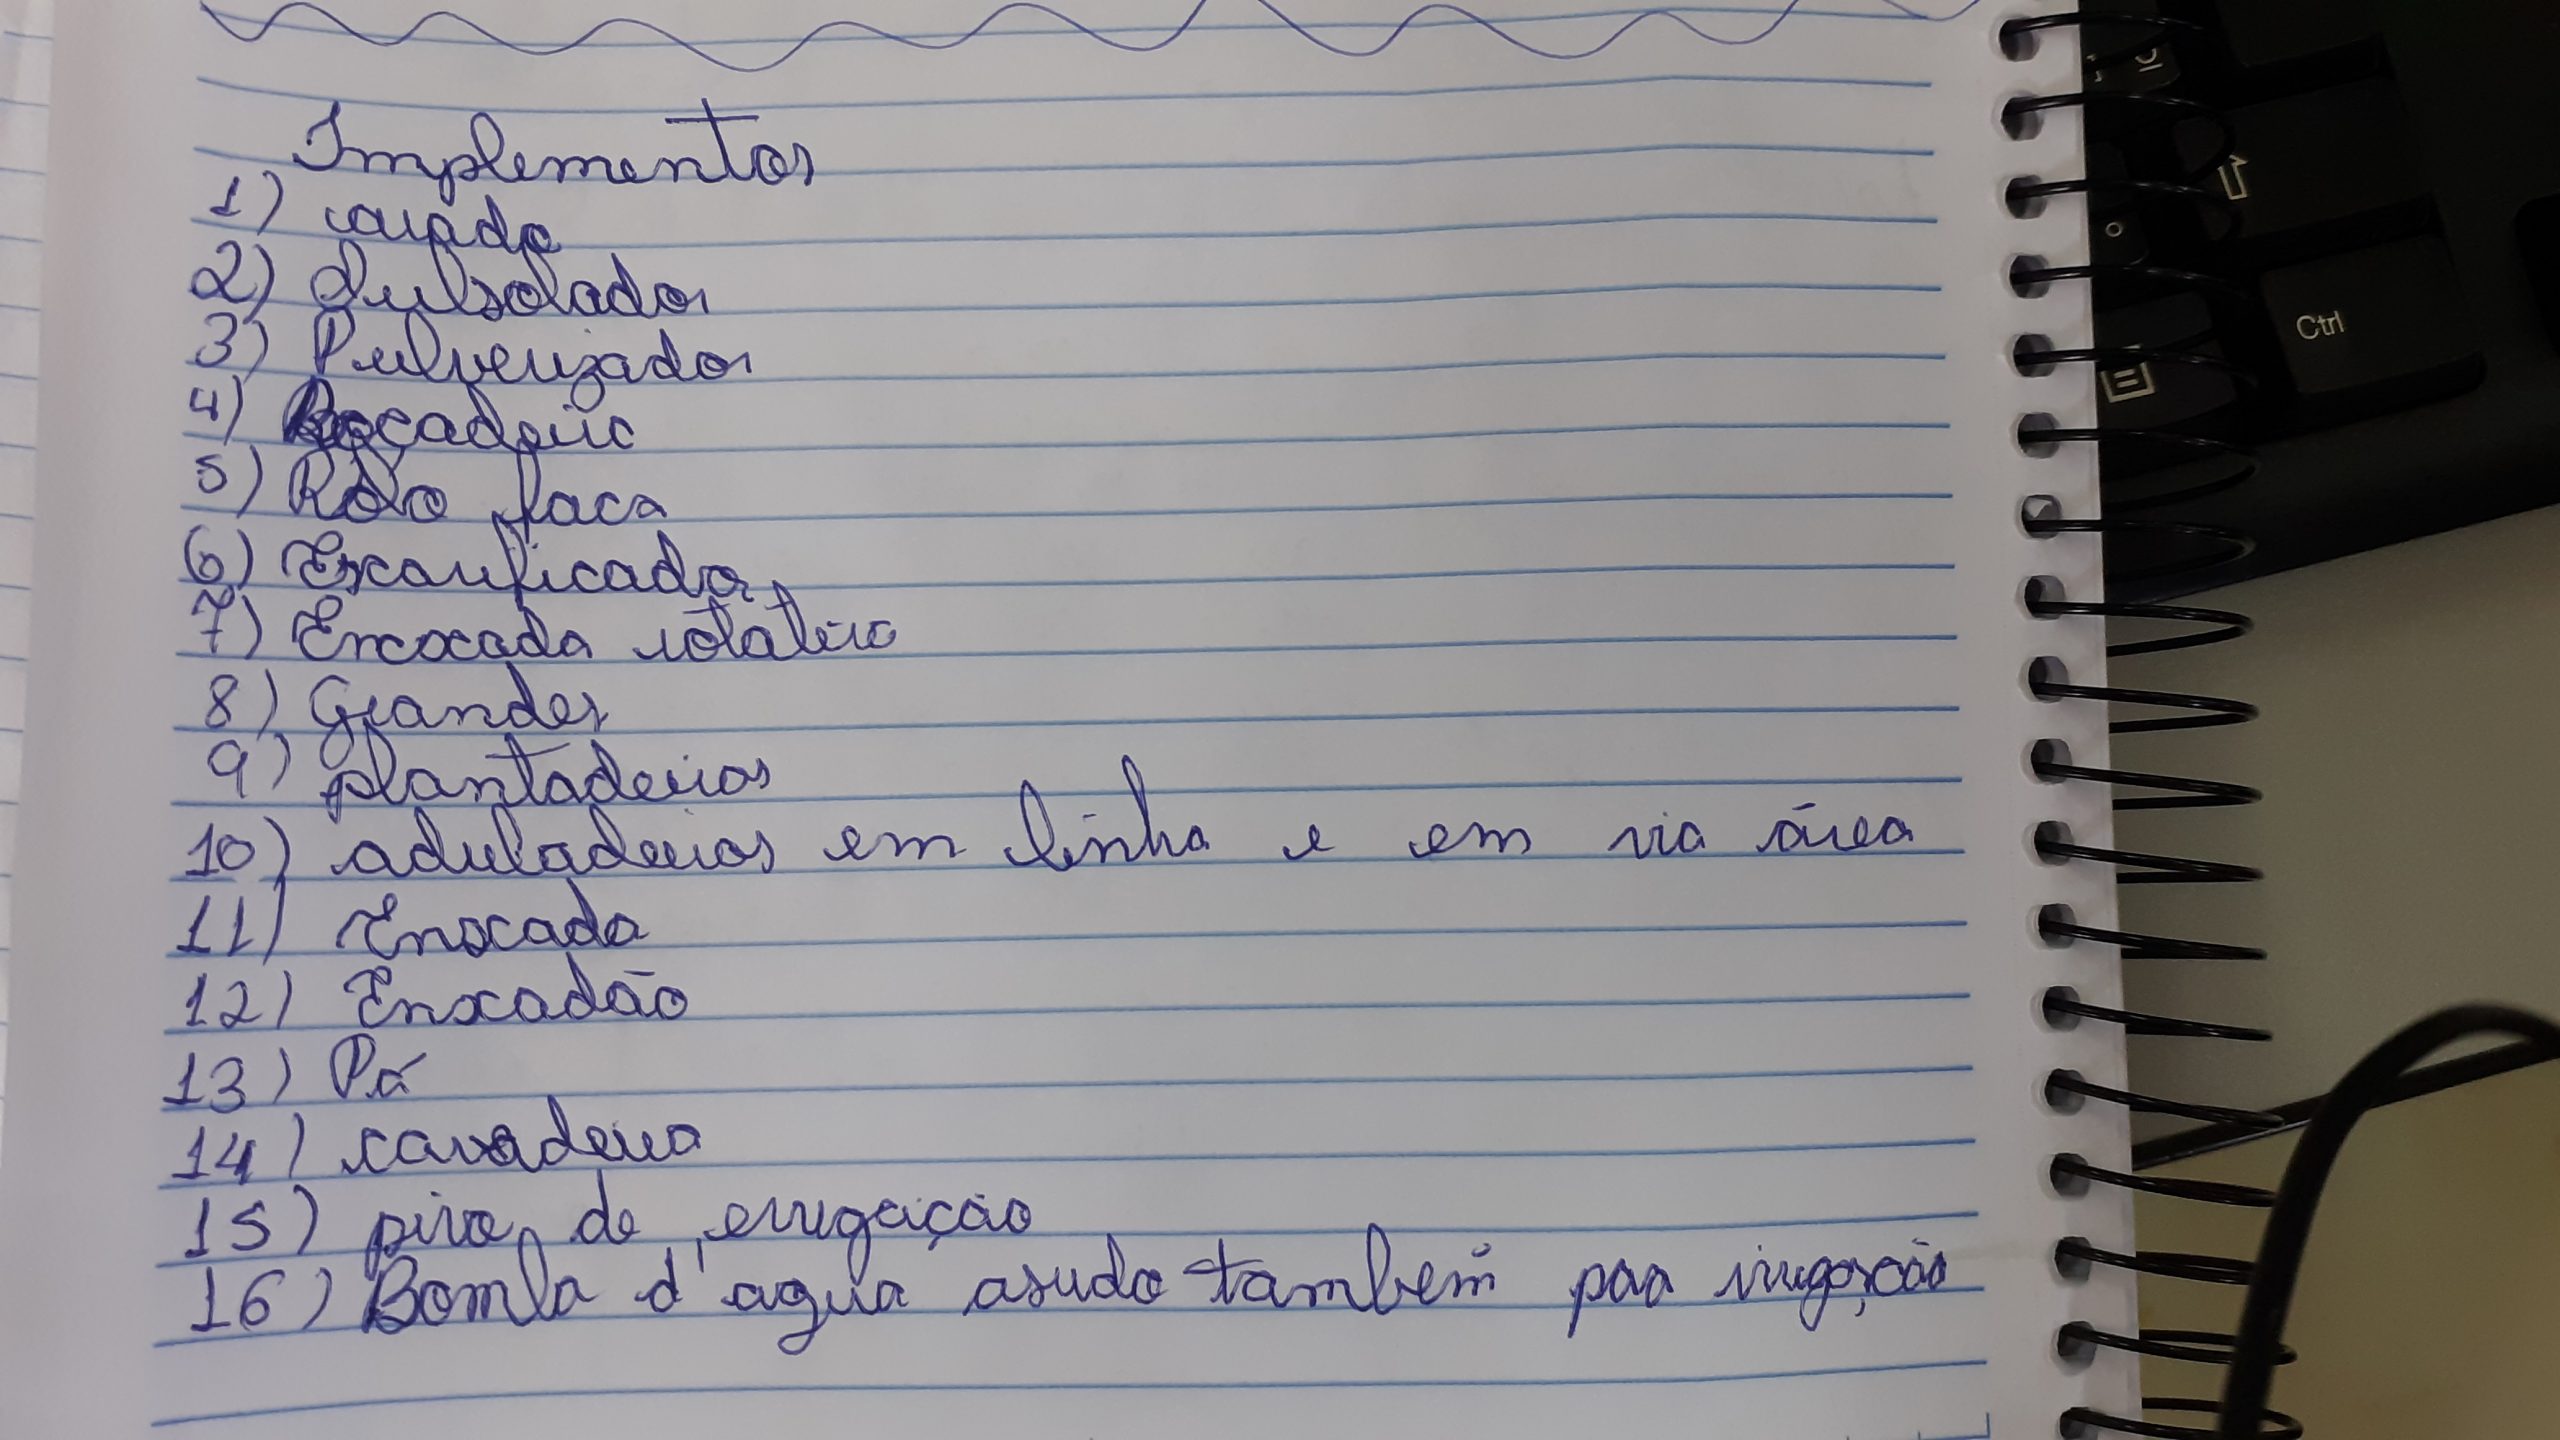 Implementos
1) arado
2) Subsolador
3) Pulverizador
4) Roçadeira
5) Rolo faca
6) Escarificador
7) Enxada rotativa
8) Grandes
9) plantadeiras
10) adubadeiras em linha e em via área
11) Enxada
12) Enxadão
13) Pá
14) cavadeira
15) pivo de errigação
16) Bomba d'agua asudo também para irrigação
Ctrl